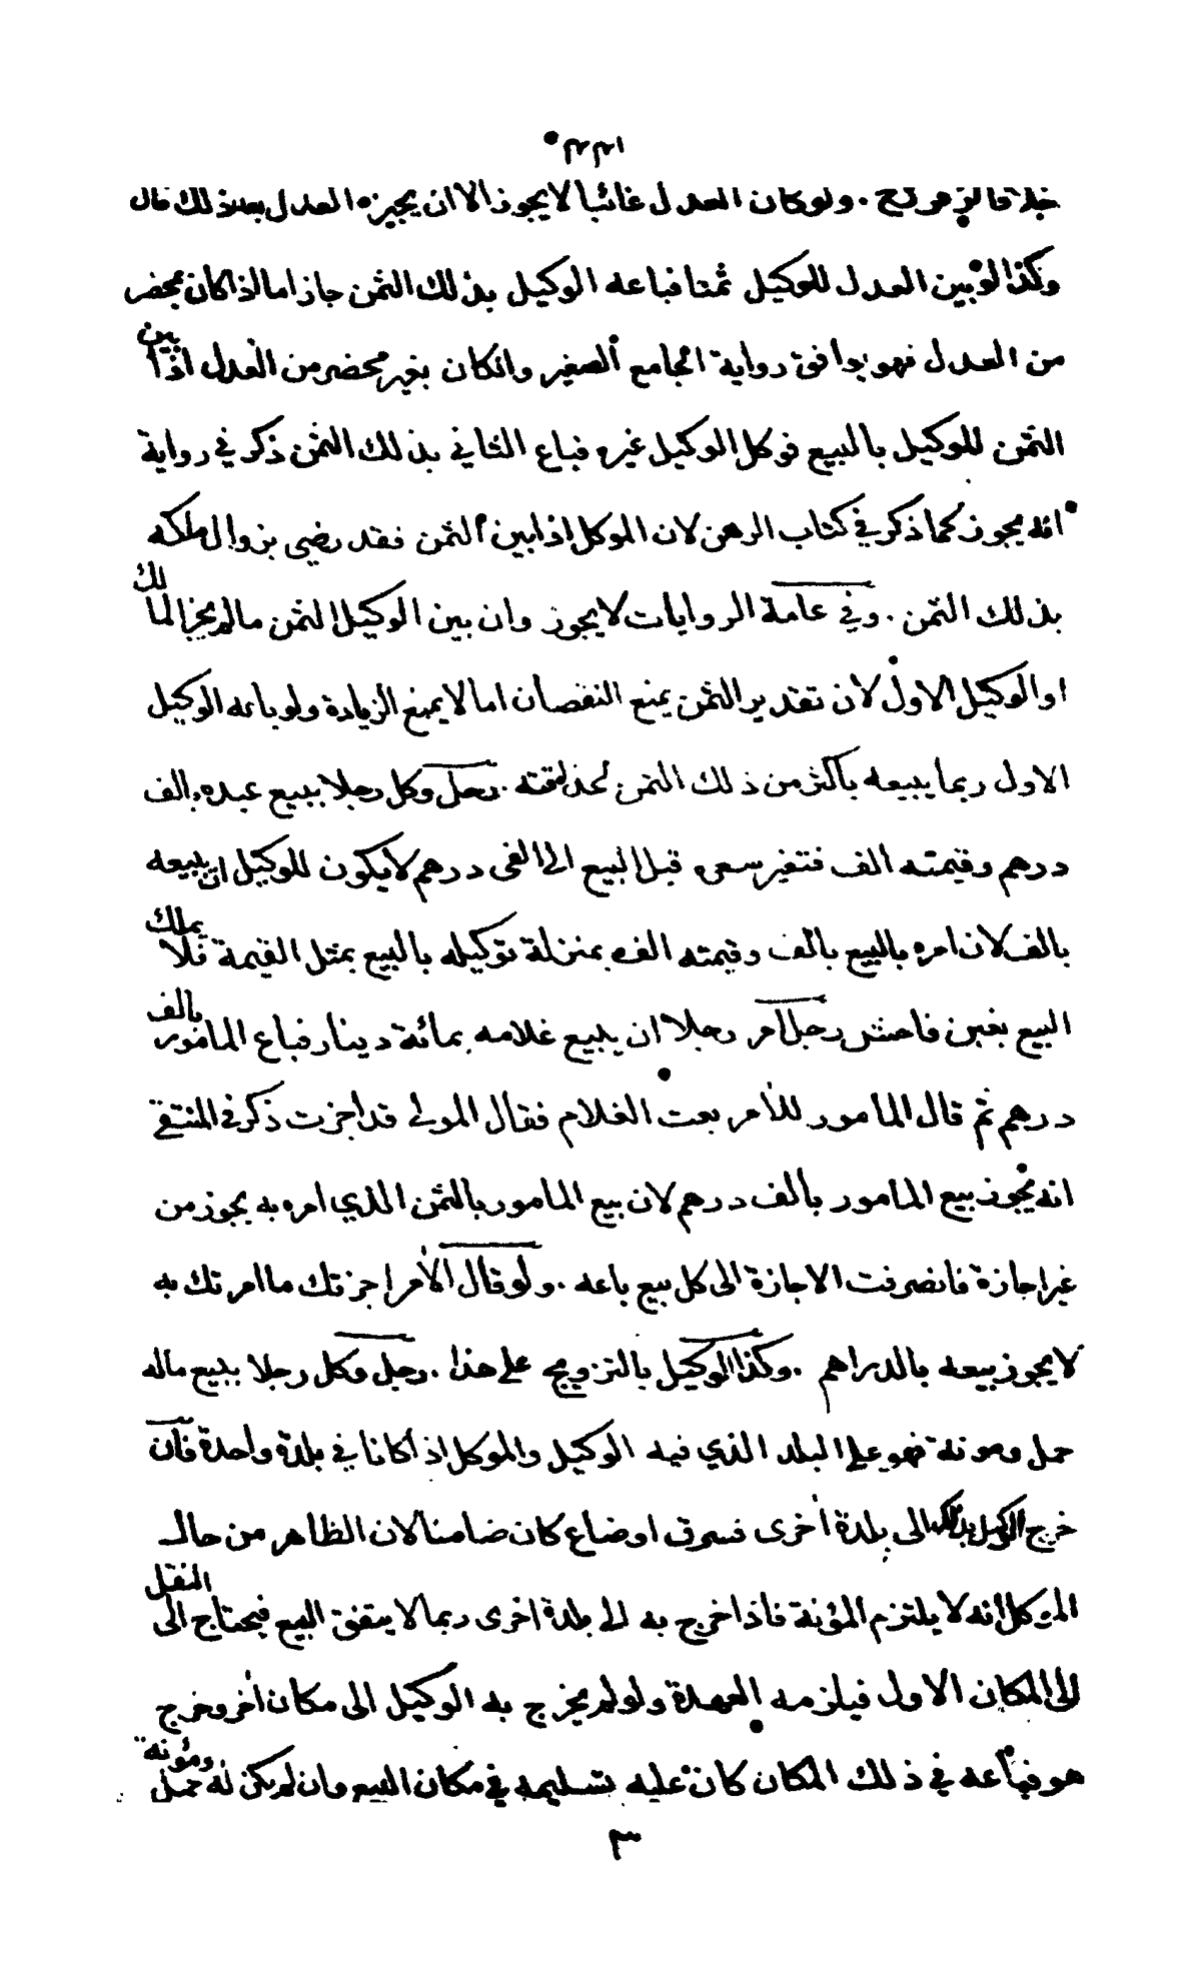 خلافا لزفر رح . ولو كان العدل غائبا لا يجوز الا ان يجيزه العدل بعد ذلك قال
وكذا لو بين العدل للوكيل ثمنا فباعه الوكيل بذلك الثمن جاز اما اذا كان بمحضر
من العدل فهو يوافق رواية الجامع الصغير وان كان بغير محضر من العدل اذا بين
الثمن للوكيل بالبيع فوكل الوكيل غيره فباع الثاني بذلك الثمن ذكر في رواية
انه يجوز كما ذكر في كتاب الرهن لان الموكل اذا بين الثمن فقد رضي بزوال ملكه
بذلك الثمن . وفي عامة الروايات لا يجوز وان بين الوكيل الثمن مالم يجز المالك
او الوكيل الاول لان تقدير الثمن يمنع النقصان اما لا يمنع الزيادة ولو باعه الوكيل
الاول ربما يبيعه بأكثر من ذلك الثمن لحذاقته . رجل وكل رجلا ببيع عبده بالف
درهم وقيمته الف فتغير سعره قبل البيع الى الفي درهم لا يكون للوكيل ان يبيعه
بالف لان امره بالبيع بالف وقيمته الف بمنزلة توكيله بالبيع بمثل القيمة فلا يملك
البيع بغبن فاحش رجل آمر رجلا ان يبيع غلامه بمائة دينار فباع المامور بالف
درهم ثم قال المامور للآمر بعت الغلام فقال المولى قد اجزت ذكر في المنتقى
انه يجوز بيع المامور بالف درهم لان بيع المامور بالثمن الذي امره به يجوز من
غير اجازة فانصرفت الاجازة الى كل بيع باعه . ولو قال الآمر اجزتك ما امرتك به
لا يجوز بيعه بالدراهم . وكذا الوكيل بالتزويج على هذا . رجل وكل رجلا ببيع ماله
حمل ومونة فهو على البلد الذي فيه الوكيل والموكل اذا كانا في بلدة واحدة فان
خرج الوكيل بذلك الى بلدة أخرى فسرق او ضاع كان ضامنا لان الظاهر من حال
الموكل انه لا يلتزم المؤنة فاذا خرج به الى بلدة اخرى ربما لا يتفق البيع فيحتاج الى النقل
الى المكان الاول فيلزمه العهدة ولو لم يخرج به الوكيل الى مكان آخر وخرج
هو فباعه في ذلك المكان كان عليه تسليمه في مكان البيع وان لم يكن له حمل ومؤنة
٣